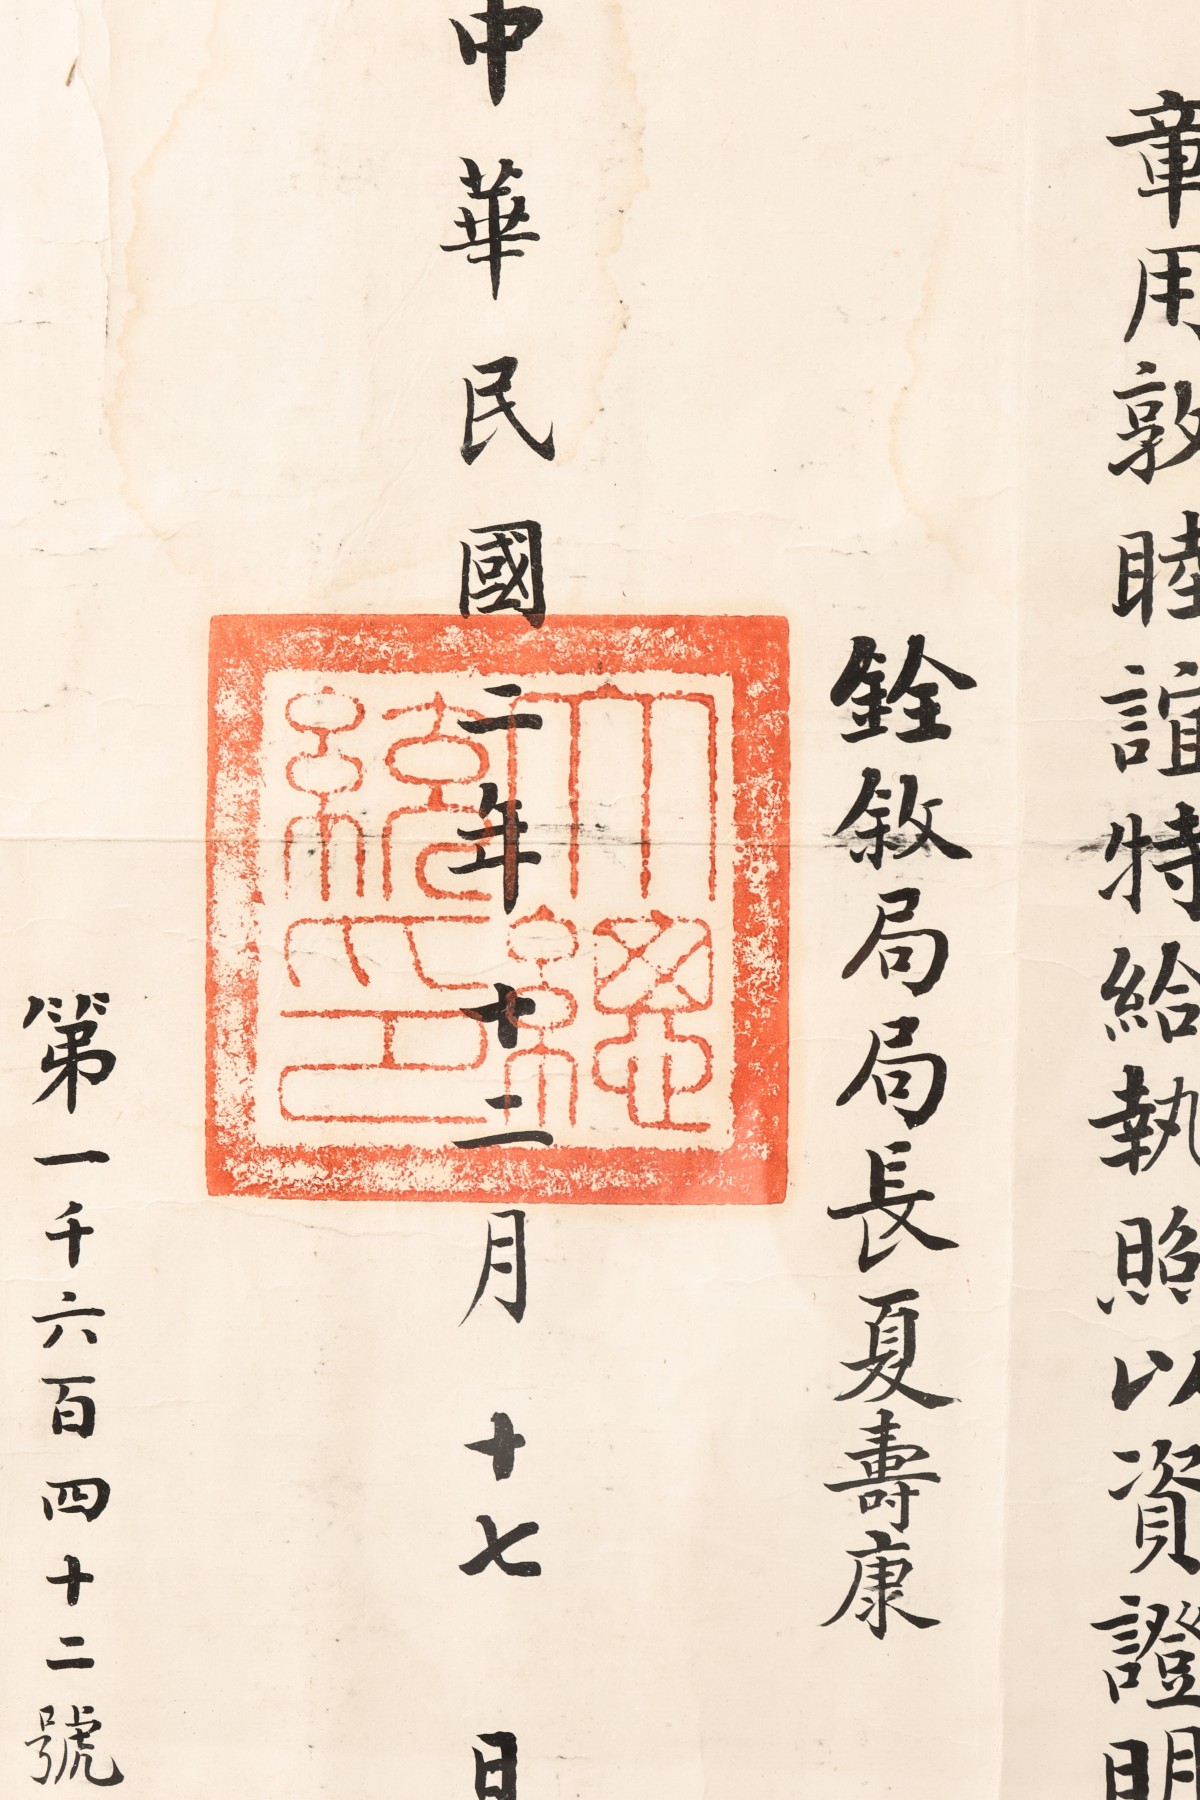 章用敦睦誼特給執照以資證明
銓敘局局長夏壽康
中華民國二年十二月十七日
大總統印
第一千六百四十二號